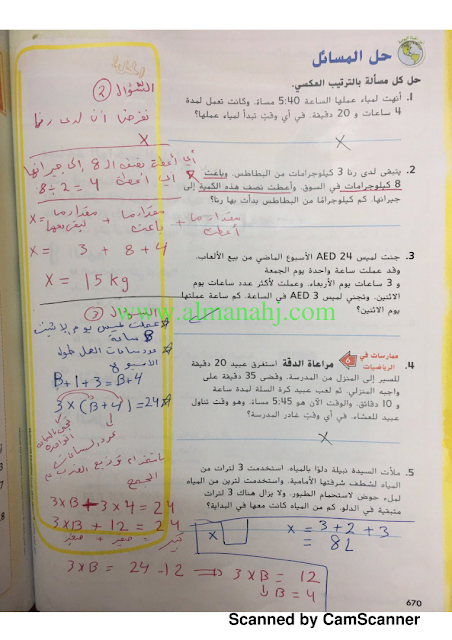 حل المسائل
حل كل مسألة بالترتيب العكسي.
1. أنهت لمياء عملها الساعة 5:40 مساءً. وكانت تعمل لمدة
4 ساعات و 20 دقيقة. في أي وقت تبدأ لمياء عملها؟
X
2. يتبقى لدى رنا 3 كيلوجرامات من البطاطس. وباعت
8 كيلوجرامات في السوق. وأعطت نصف هذه الكمية إلى
جيرانها. كم كيلوجرامًا من البطاطس بدأت بها رنا؟
3. جنت لميس AED 24 الأسبوع الماضي من بيع الألعاب.
وقد عملت ساعة واحدة يوم الجمعة
و 3 ساعات يوم الأربعاء. وعملت لأكثر عدد ساعات يوم
الاثنين. وتجني لميس AED 3 في الساعة. كم ساعة عملتها
يوم الاثنين؟
ممارسات في الرياضيات 6
4. مراعاة الدقة استغرق عبيد 20 دقيقة
للسير إلى المنزل من المدرسة. وقضى 35 دقيقة على
واجبه المنزلي. ثم لعب عبيد كرة السلة لمدة ساعة
و 10 دقائق. والوقت الآن هو 5:45 مساءً. وهو وقت تناول
عبيد للعشاء. في أي وقت غادر المدرسة؟
X
5. ملأت السيدة نبيلة دلوًا بالمياه. استخدمت 3 لترات من
المياه لشطف شرفتها الأمامية. واستخدمت لترين من المياه
لملء حوض لاستحمام الطيور. ولا يزال هناك 3 لترات
متبقية في الدلو. كم من المياه كانت معها في البداية؟
X
X = 3 + 2 + 3
= 8L
670
السؤال 2
نفرض أن لدى رنا
X
8 ÷ 2 = 4
X = مقدار ما + مقدار ما + مقدار ما
أعطت
X = 3 + 8 + 4
X = 15 kg
السؤال 3
B ساعة
B + 1 + 3 = B + 4
3 × (B + 4) = 24
3 × B + 3 × 4 = 24
3 × B + 12 = 24
3 × B = 24 - 12 ⇒ 3 × B = 12
↓ B = 4
www.almanahj.com
Scanned by CamScanner